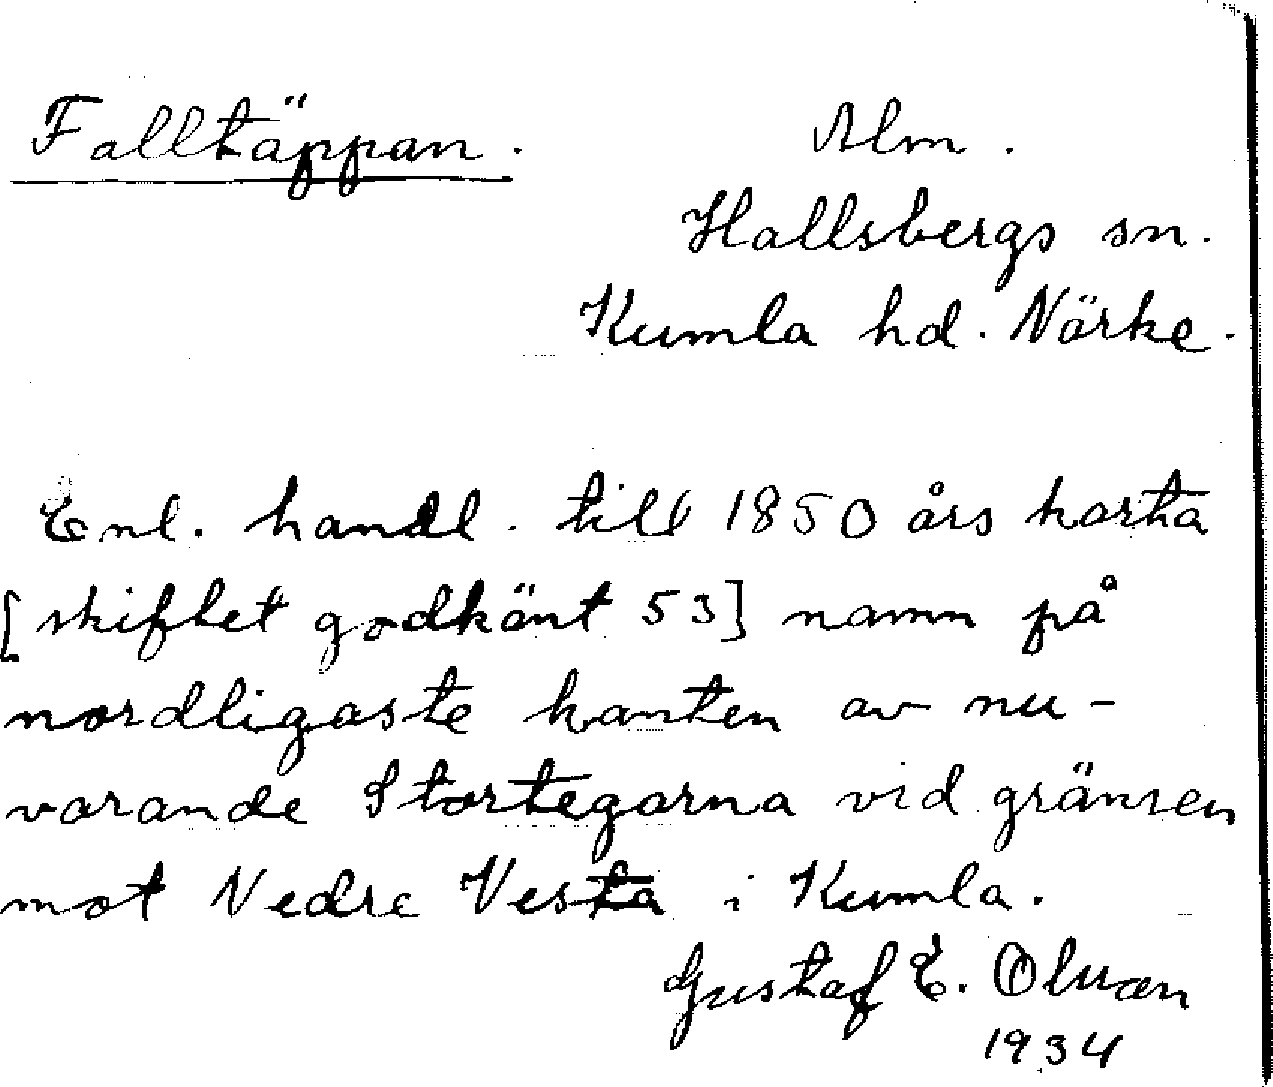 Falltäppan. Alm.
Hallsbergs sn.
Kumla hd. Närke.
Enl. handl. till 1850 års karta
[skiftet godkänt 53] namn på
nordligaste kanten av nu-
varande Stortegarna vid gränsen
mot Nedre Vesta i Kumla.
Gustaf E. Olsson
1934